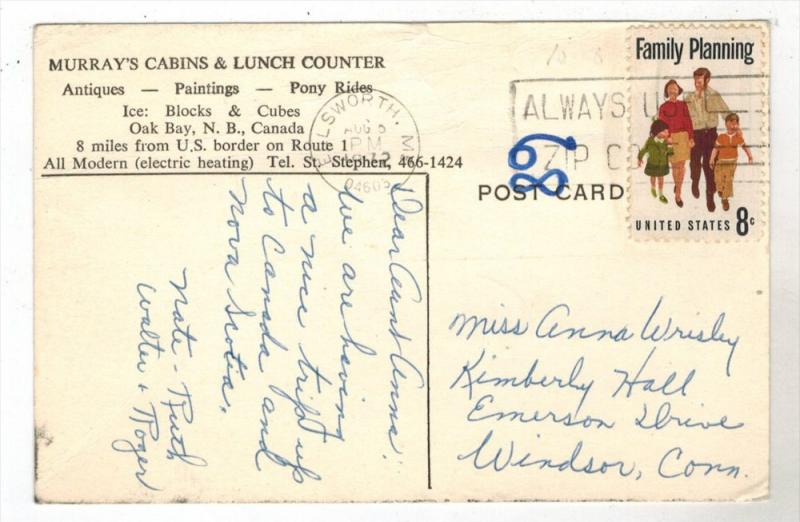 MURRAY'S CABINS & LUNCH COUNTER
Antiques — Paintings — Pony Rides
Ice: Blocks & Cubes
Oak Bay, N. B., Canada
8 miles from U.S. border on Route 1
All Modern (electric heating) Tel. St. Stephen, 466-1424
ELLSWORTH, ME
AUG 8
PM
1972
04605
ALWAYS USE
ZIP CODE
Family Planning
UNITED STATES 8c
POST CARD
Dear Aunt Anna:
We are having
a nice trip up
to Canada and
Nova Scotia.
Nate - Ruth
Walter + Roger
Miss Anna Wrisley
Kimberly Hall
Emerson Drive
Windsor, Conn.